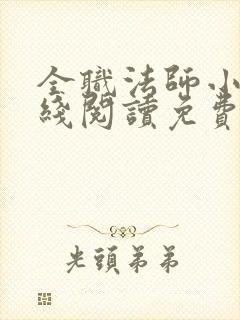 全職法師小
綫閱讀免費
光頭弟弟